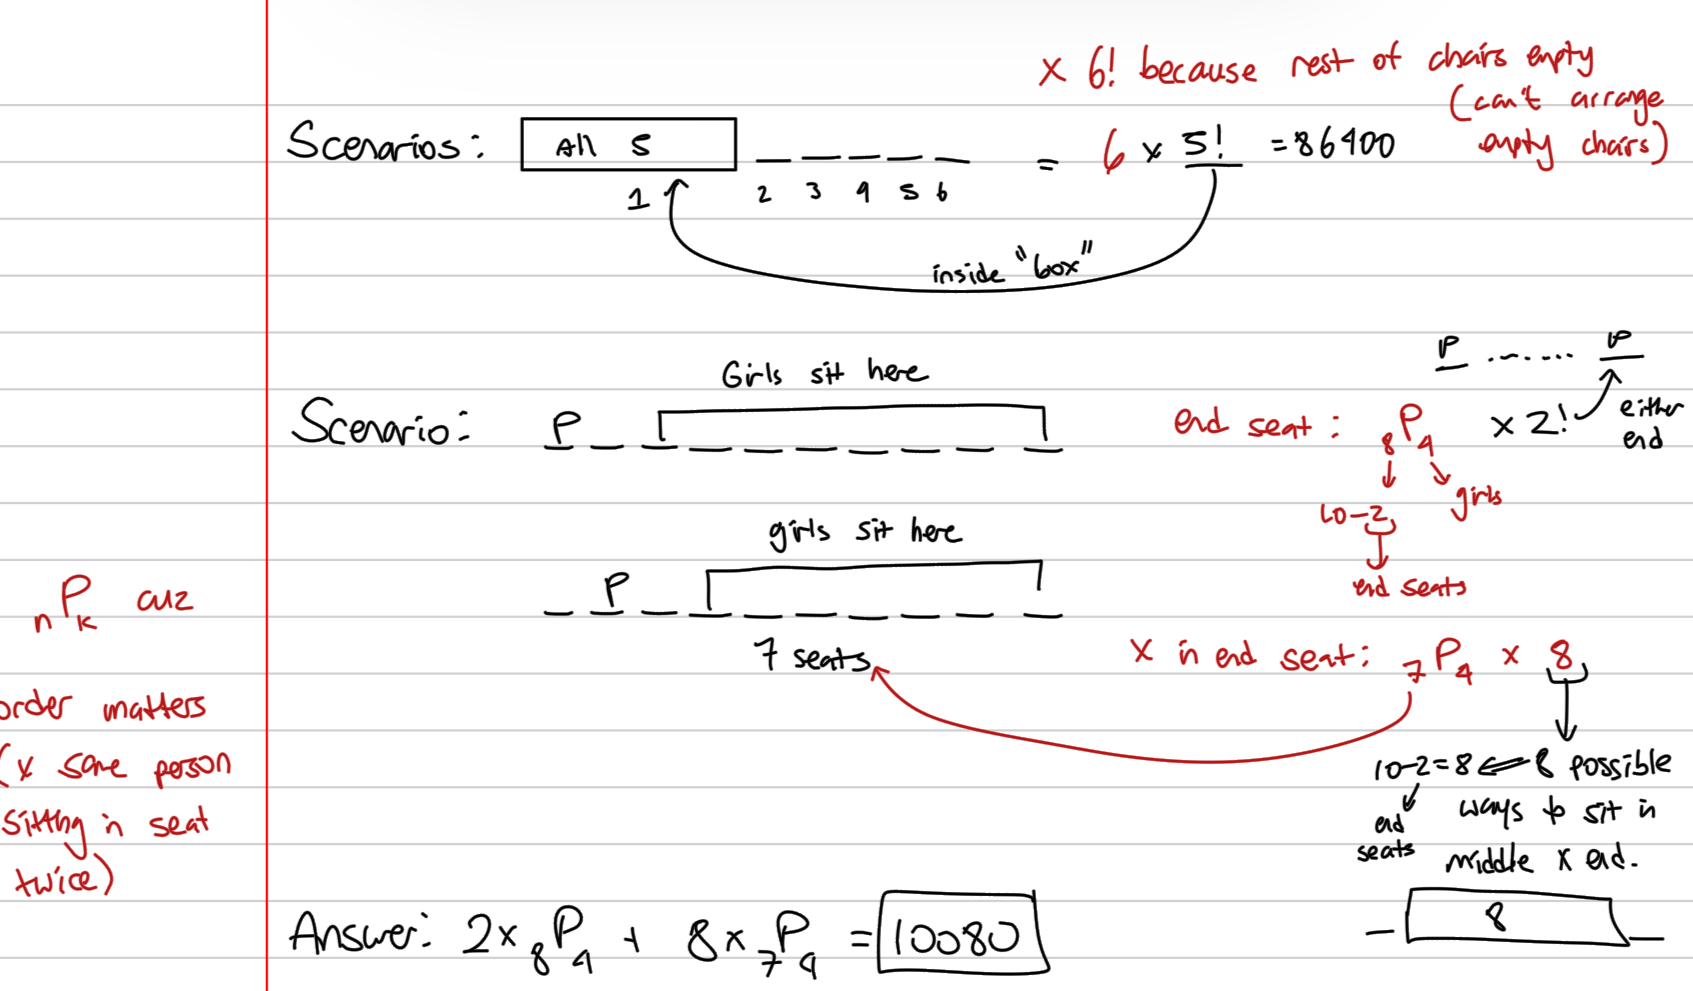 x 6! because rest of chairs empty
(can't arrange
empty chairs)
Scenarios: All 5 _ _ _ _ _ = 6 x 5! = 86400
1 2 3 4 5 6
inside "box"
P ....... P
Girls sit here
Scenario: P
end seat: 8P4 x 2! either
end
girls
10-2
end seats
girls sit here
P
7 seats
x in end seat: 7P4 x 8
nPk cuz
order matters
(x same person
sitting in seat
twice)
10-2=8 8 possible
end
seats
ways to sit in
middle x end.
8
Answer: 2x 8P4 + 8x 7P4 = 10080